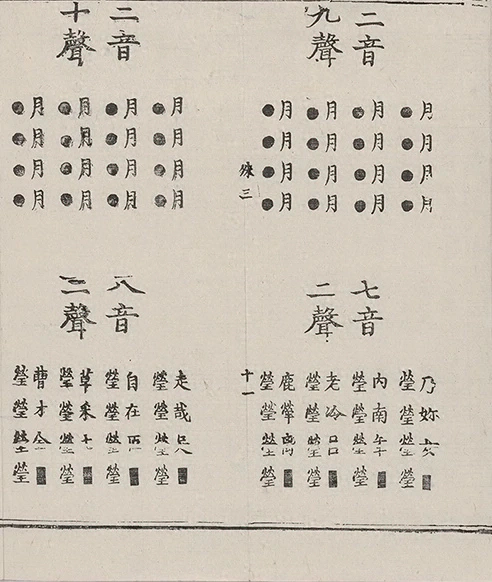 二音
九聲
月月月月
●●●●
月月月月
●●●●
月月月月
●●●●
月月月月
●●●●
七音
二聲
乃妳女■
瑩瑩瑩瑩
內南年■
瑩瑩瑩瑩
老冷呂■
瑩瑩瑩瑩
鹿犖離■
瑩瑩瑩瑩
三
十一
二音
十聲
月月月月
●●●●
月月月月
●●●●
月月月月
●●●●
月月月月
●●●●
八音
二聲
走哉足■
瑩瑩瑩瑩
自在匠■
瑩瑩瑩瑩
草采七■
瑩瑩瑩瑩
曹才全■
瑩瑩瑩瑩